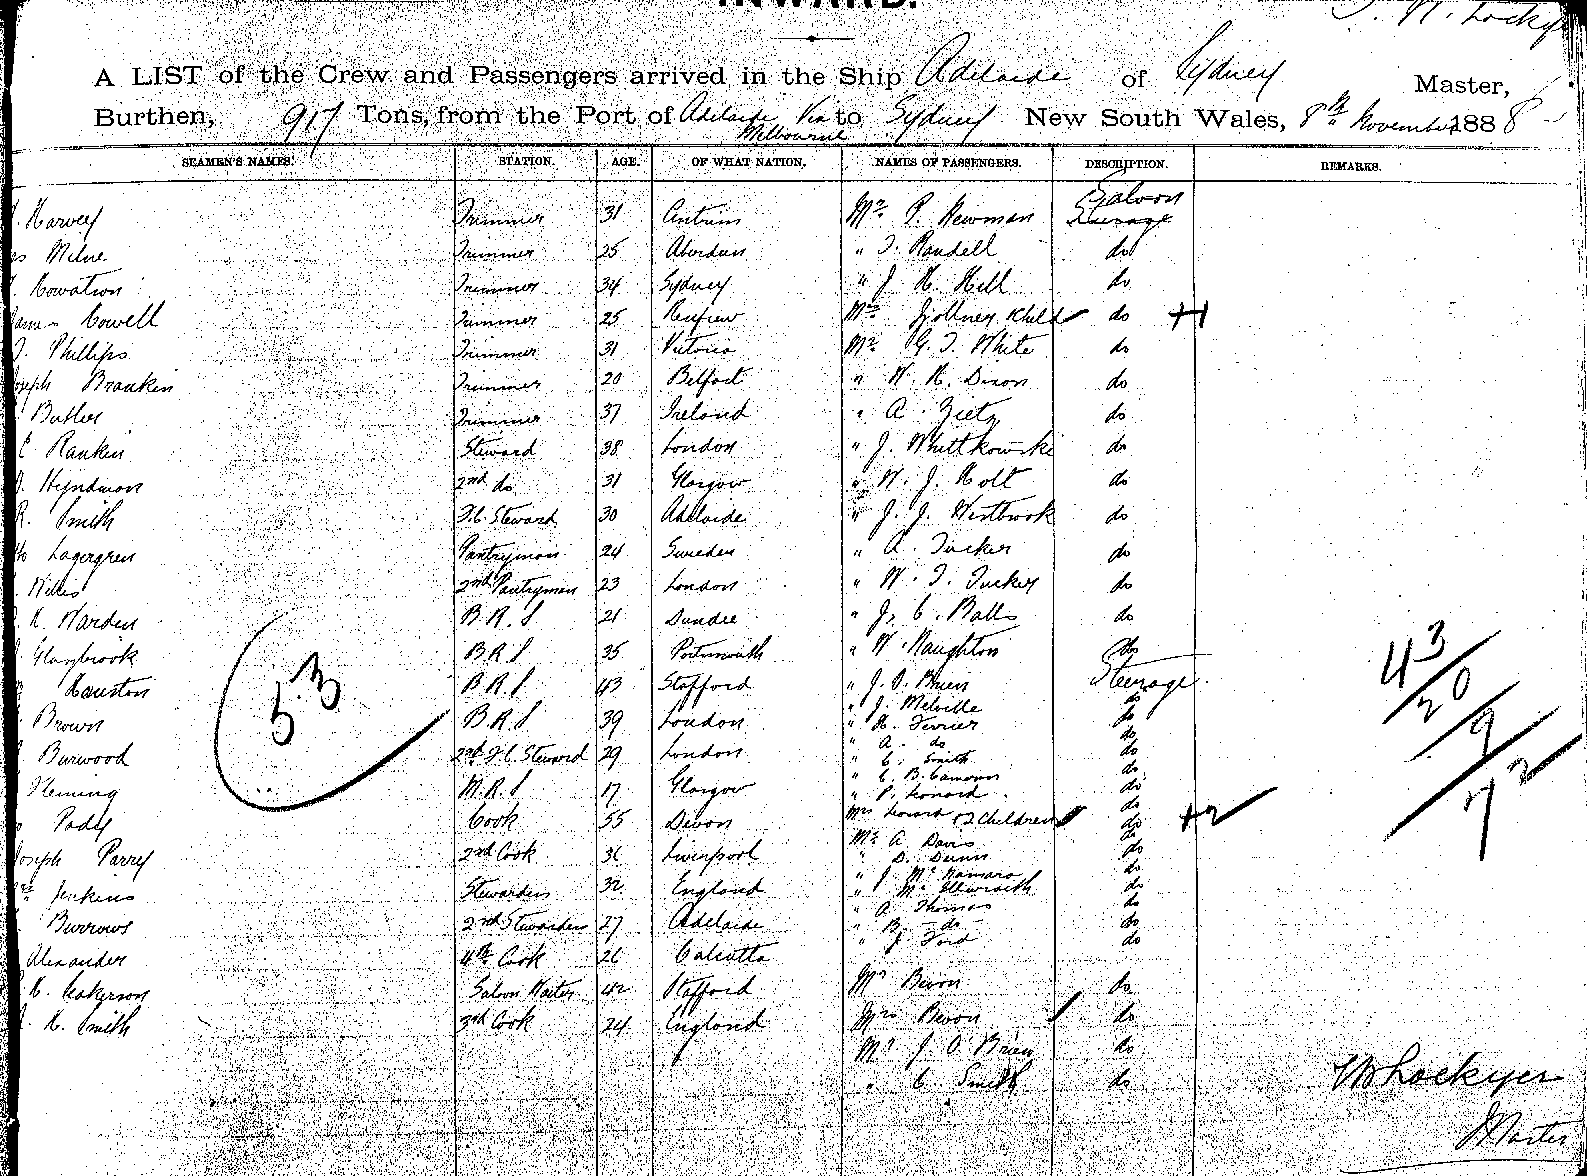 INWARD.
A LIST of the Crew and Passengers arrived in the Ship Adelaide of Sydney Master,
Burthen, 917 Tons, from the Port of Adelaide Via Melbourne to Sydney New South Wales, 8th November 1888
SEAMEN'S NAMES. STATION. AGE. OF WHAT NATION. NAMES OF PASSENGERS. DESCRIPTION. REMARKS.
Harvey Trimmer 31 Antrim Mr P. Newman Saloon
Milne Trimmer 25 Aberdeen " T. Randell do
Howatson Trimmer 34 Sydney " J. H. Hill do
Cowell Trimmer 25 Renfrew Mrs Child do +1
Phillips Trimmer 31 Victoria Mr G. T. White do
Joseph Brankin Trimmer 20 Belfast " W. H. Dixon do
Butler Trimmer 37 Ireland " A. Zietz do
Rankin Steward 38 London " J. do
Hyndman 2nd do 31 Glasgow " W. J. Holt do
R. Smith F.C. Steward 30 Adelaide " J. J. Westbrook do
Lagergren Pantryman 24 Sweden " A. Tucker do
Willis 2nd Pantryman 23 London " W. T. Tucker do
Warden B.R.S 21 Dundee " J. C. Balls do
Glazbrook B.R.S 35 Portsmouth " W. Naughton do
Houston B.R.S 43 Stafford " J. O. Brien Steerage
" J. Melville do
Brown B.R.S 39 London " H. Ferrier do
" A. do do
Burwood 2nd F.C. Steward 29 London " C. Smith do
" C. B. do
Fleming M.R.S 17 Glasgow " P. Leonard do
Pady Cook 55 Devon Mrs Leonard & 2 Children do +2
Mr A. Davis do
Joseph Parry 2nd Cook 36 Liverpool " D. Dunn do
" J. McNamara do
Jenkins Stewardess 32 England " do
" A. Thomas do
Burrows 2nd Stewardess 27 Adelaide " B. do do
" J. Ford do
Alexander 4th Cook 26 Calcutta
Saloon Waiter 42 Stafford Mr Bevon do
H. Smith 3rd Cook 24 England Mrs Bevon do
Mr J. O. Brien do
" C. Smith do
53
43
20
9
72
Lockyer
Master